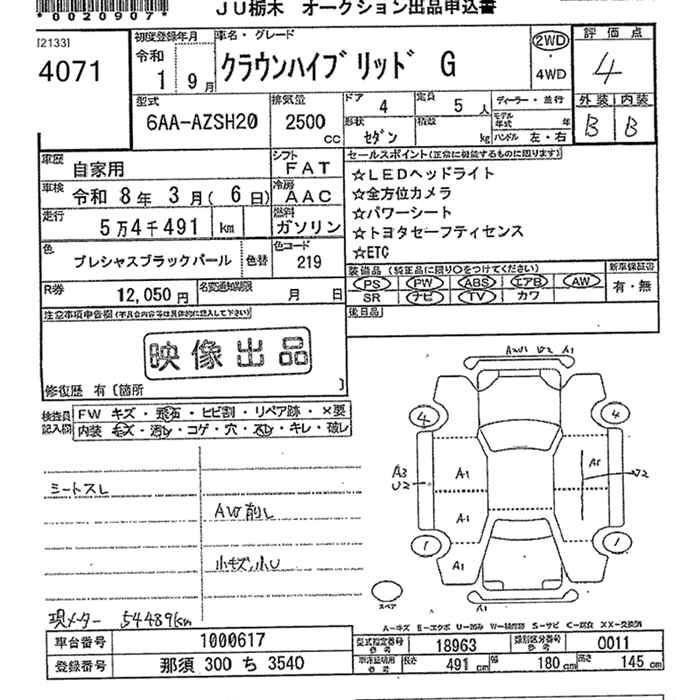 *0020907*
JU栃木 オークション出品申込書
[2133]
4071
初度登録年月
令和
1 9月
車名・グレード
クラウンハイブリッド G
2WD
4WD
評価点
4
外装 内装
B B
型式
6AA-AZSH20
排気量
2500
cc
ドア
4
定員
5 人
形状
セダン
積載
kg
ディーラー・並行
モデル年式 年
ハンドル 左・右
車歴
自家用
シフト
FAT
車検
令和 8年 3月(6日)
冷房
AAC
走行
5万4千491 km
燃料
ガソリン
色
プレシャスブラックパール
色替
色コード
219
R券
12,050円
名変通知期限
月 日
セールスポイント(正常に機能するものに限ります)
☆LEDヘッドライト
☆全方位カメラ
☆パワーシート
☆トヨタセーフティセンス
☆ETC
装備品 (純正品に限り○をつけてください)
PS PW ABS エアB AW
SR ナビ TV カワ
新車保証書
有・無
後日品
注意事項申告欄(不具合内容等は具体的に記入して下さい)
映像出品
修復歴 有〔箇所 〕
検査員記入欄
FW キズ・飛石・ヒビ割・リペア跡・×要
内装 モズ・汚レ・コゲ・穴・スレ・キレ・破レ
シートスレ
AW削レ
小キズ、小U
現メーター 54489km
AWU U2 A1
4 4
A3
U2
A1
A1
A1
U2
A1
1 1
A1
スペア
A-キズ E-エクボ U-凹み W-補修跡 S-サビ C-腐食 XX-交換済
車台番号
1000617
登録番号
那須 300 ち 3540
型式指定番号 参考
18963
類別区分番号 参考
0011
車庫証明用 参考
長さ 491cm
幅 180cm
高さ 145cm